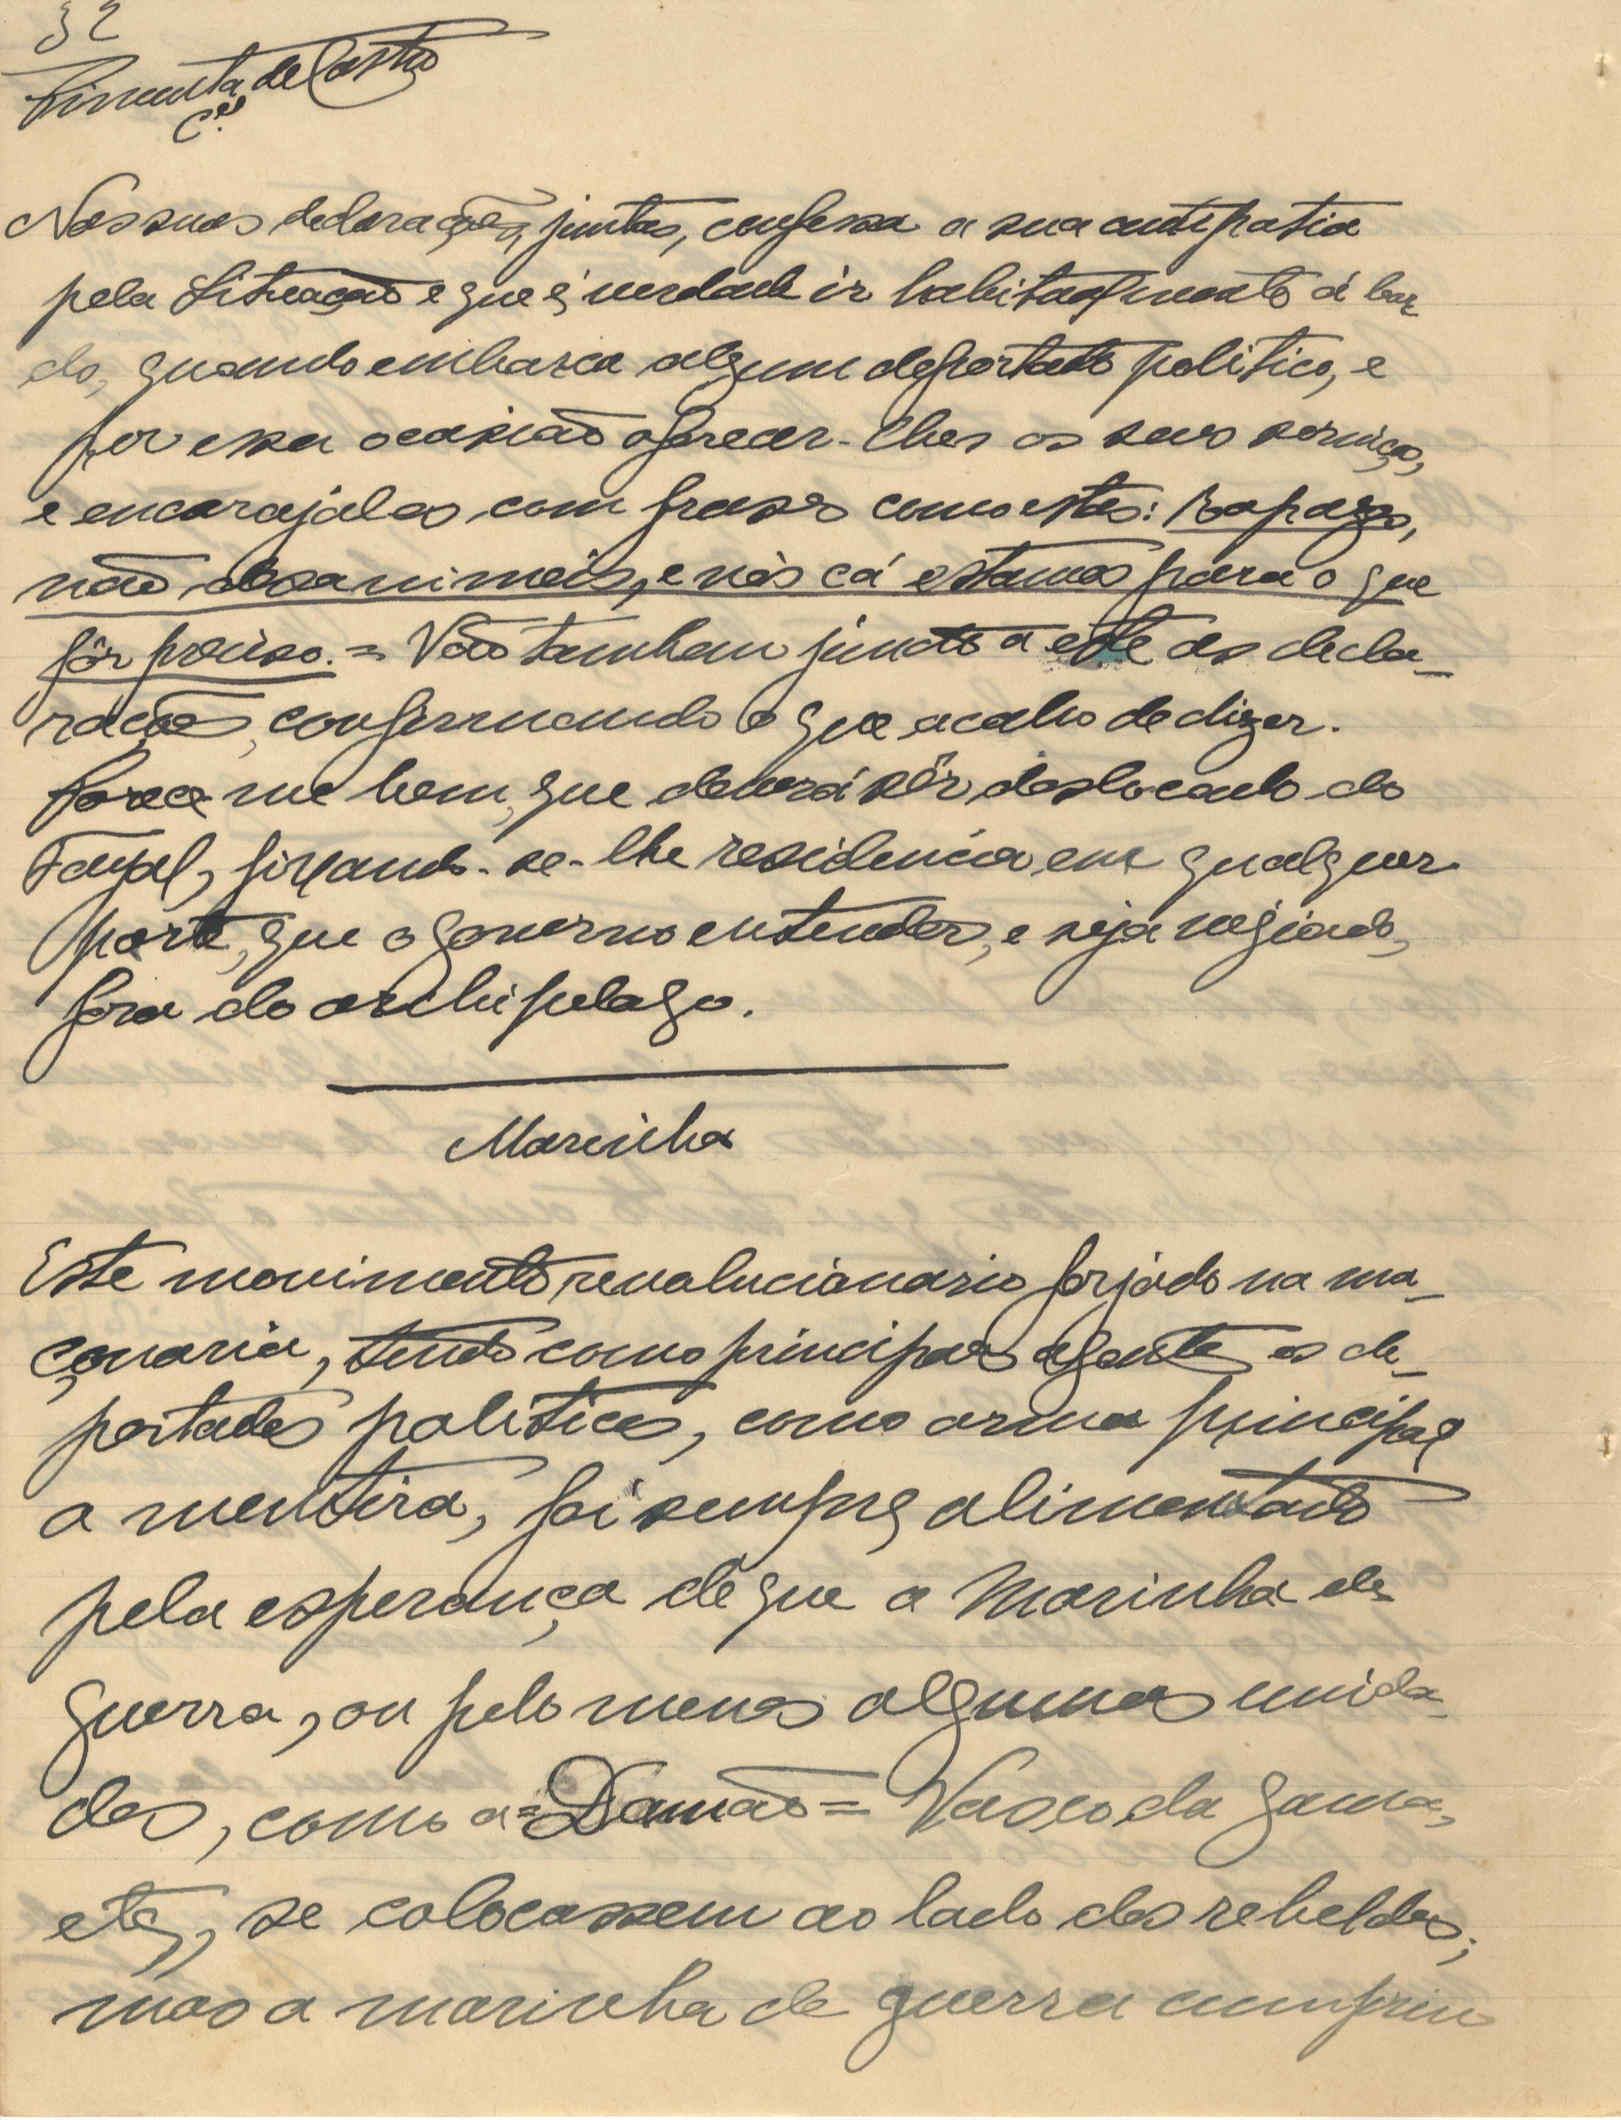 32
Pimenta de Castro
C.el
Nas suas declarações, juntas, confessa a sua antipatia
pela Situação e que é verdade ir habitualmente á bor
do, quando embarca algum deportado politico, e
por essa ocasião oferecer-lhes os seus serviços,
e encorajalos com frases como estas: Rapazes,
não desanimeis, e nós cá estamos para o que
fôr preciso. = Vão tambem junto a este as decla-
rações, confirmando o que acabo de dizer.
Parece me bem, que deverá sêr deslocado do
Fayal, fixando-se-lhe residencia em qualquer
parte, que o governo entender, e seja vigiado,
fora do archipelago.
Marinha
Este movimento revolucionario forjado na ma-
çonaria, tendo como principais agentes os de-
portados politicos, como arma principal
a mentira, foi sempre alimentado
pela esperança de que a Marinha de
guerra, ou pelo menos algumas unida-
des, como a = Damão = Vasco da Gama,
etc, se colocassem ao lado dos rebeldes;
mas a marinha de guerra cumpriu